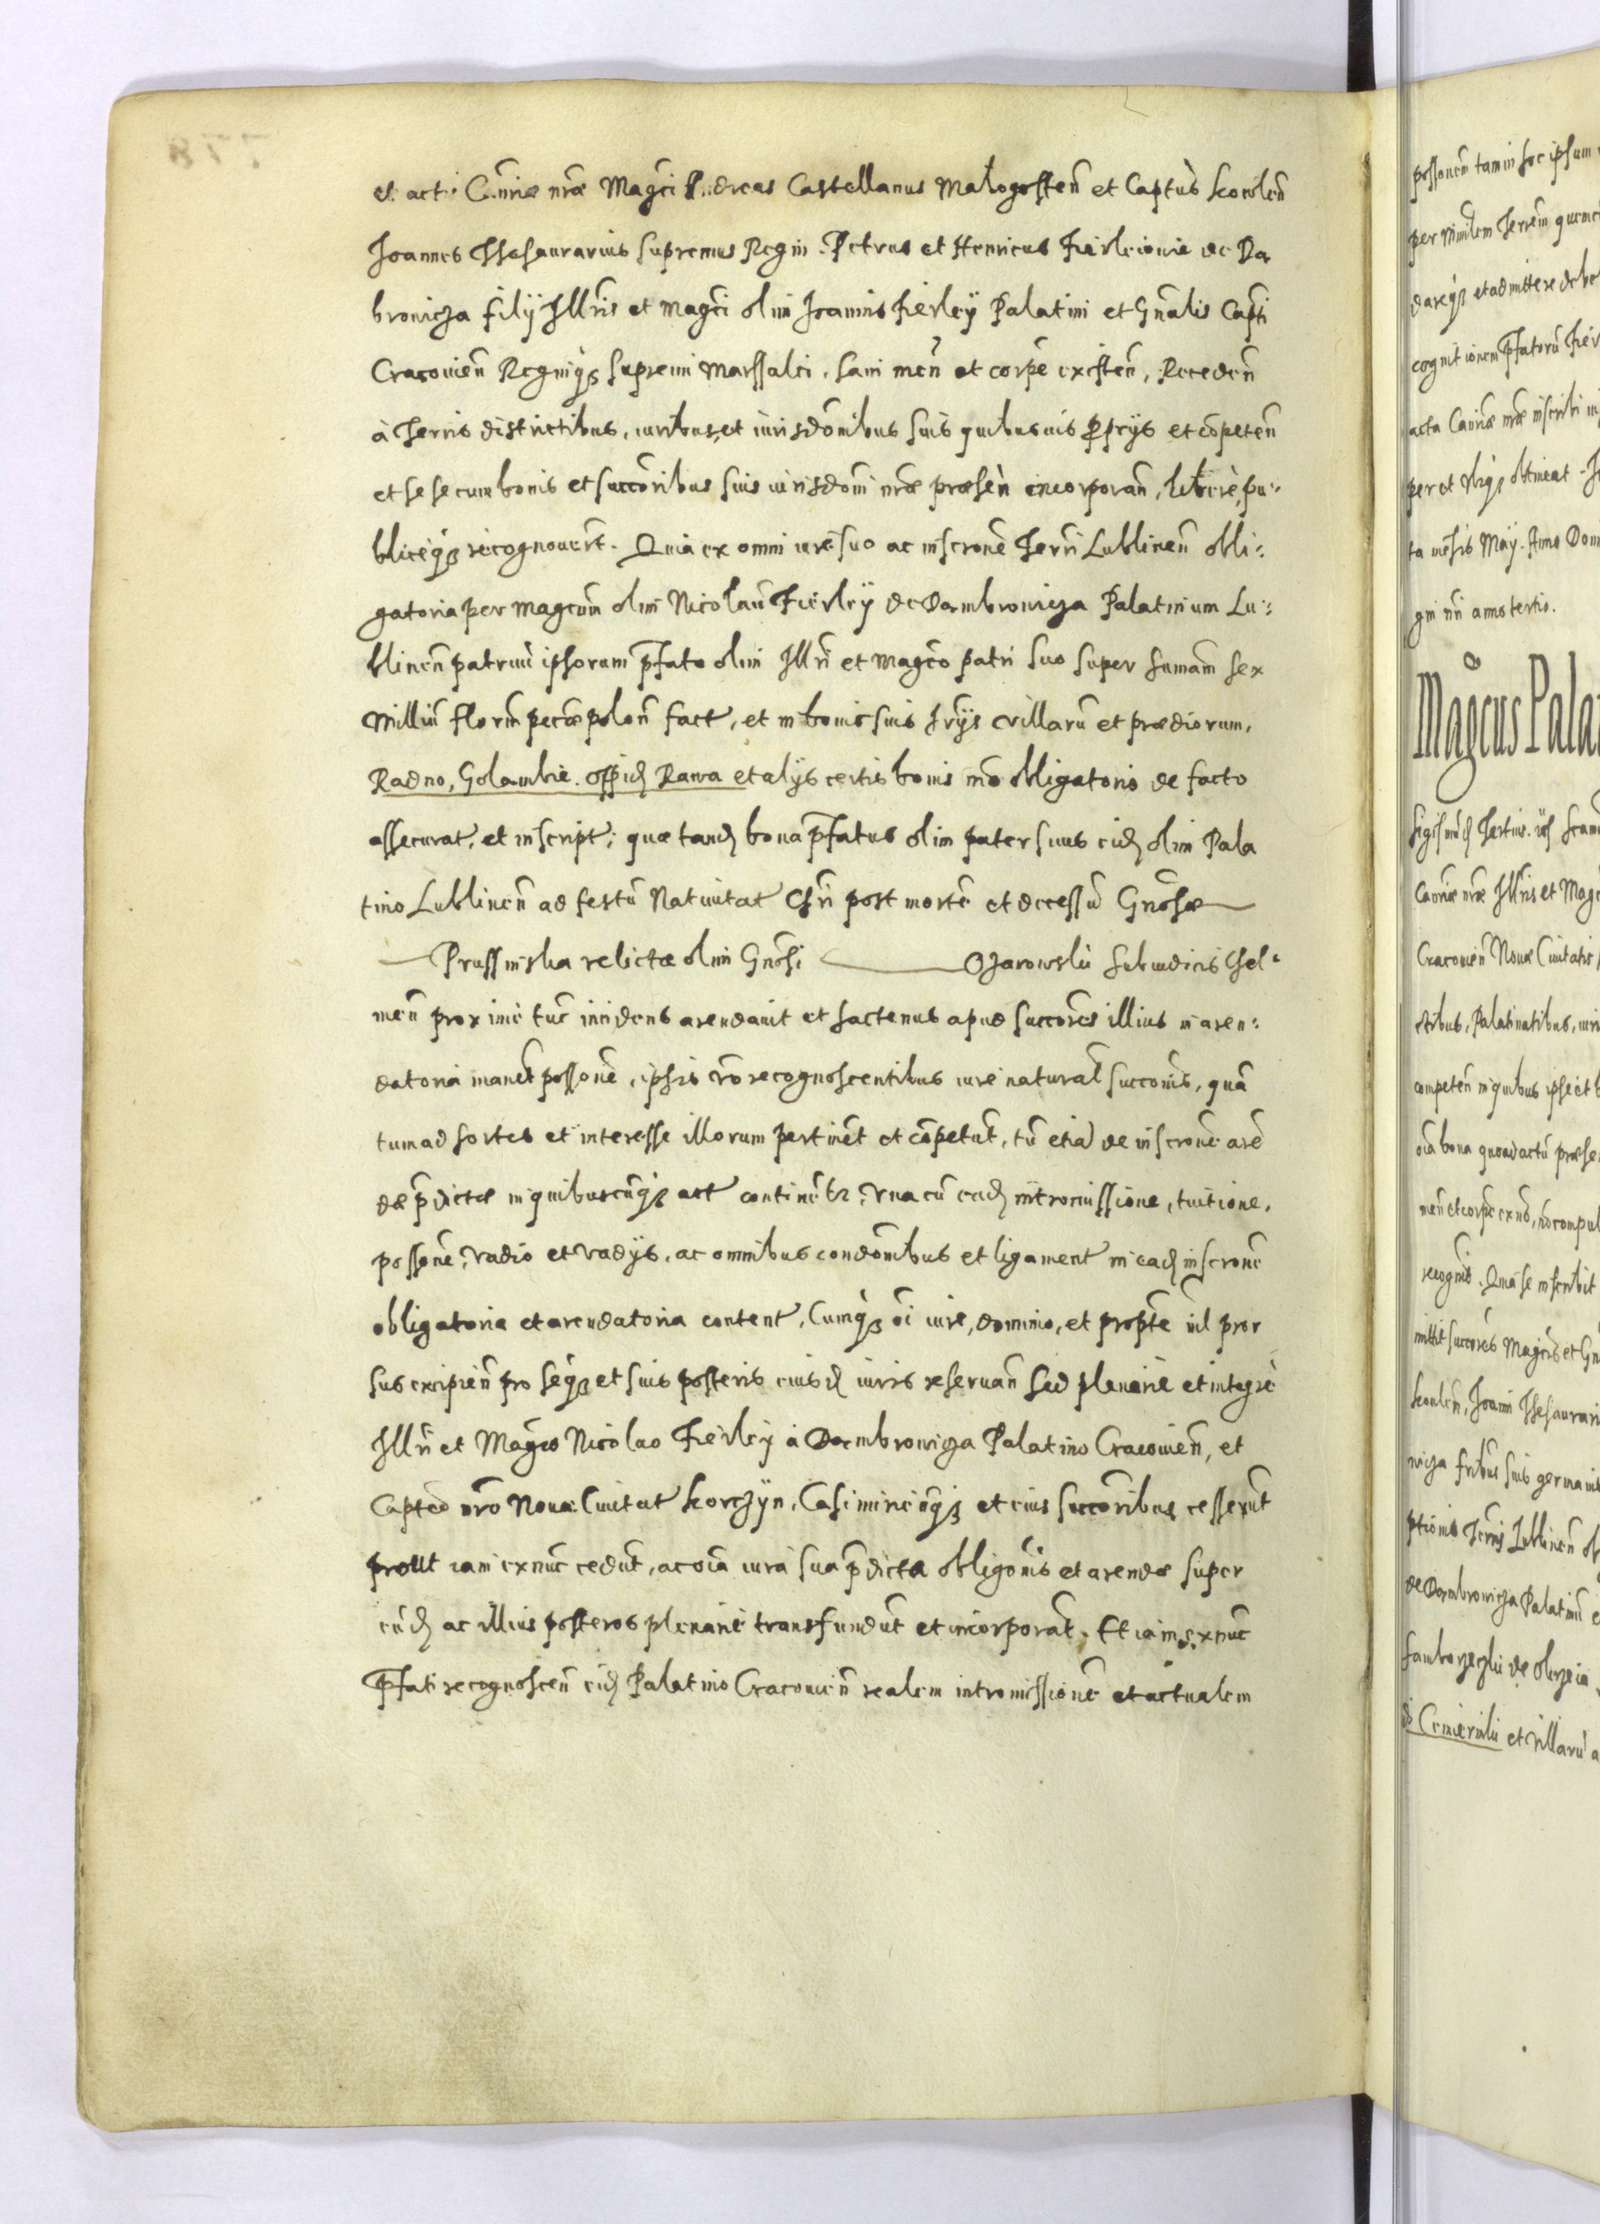 et act. Cānriæ nræ Magci Andreas Castellanus Małogosten̄ et Captūs Kowlen̄
Joannes Thesaurarius supremus Regni. Petrus et Henricus Firleiowie de Da
browicza filij Illris et Magci olim Joannis Firley Palatini et Gnālis Capti
Cracouien̄ Regniqꝫ supremi Marssalci. Sani men̄ et corpē existen̄, Receden̄
à Terris districtibus, iuribus, et iurisdōnibus suis quibusuis ꝓprijs et cōpeten̄
et se se cum bonis et succōribus suis iurisdōni nræ præsen̄ incorporan̄, liberè, pu-
bliceqꝫ recognouert. Quia ex omni iure suo ac inscrōne Terri Lublinen̄ obli-
gatoria per Magcum olim Nicolaū Firley de Dambrowicza Palatinum Lu-
blinen̄ patruū ipsorum p̄fato olim Illri et Magco patri suo super summam sex
Milliū florin̄ pecæ polon̄ fact, et in bonis suis hrijs villarū et prædiorum,
Radno, Golambie. oppid Rawa et alijs certis bonis mō obligatorio de facto
assecurat, et inscript; quæ tand bona p̄fatus olim pater suus eid olim Pala
tino Lublinen̄ ad festū Natiuitat Chri post mortē et decessū Gnōsæ
Prussinska relictæ olim Gnōsi Ozarowski Subiudicis Chel-
men̄ proxime tūc incidens arendauit et hactenus apud succōres illius in aren-
datoria manet possōne, ipsis vō recognoscentibus iure naturali succōnis, quā
tum ad sortes et interesse illorum pertinēt et cōpetūt, tū etiā de inscrōne arē
dæ p̄dictæ in quibuscūqꝫ act continētr, vna cū ead intromissione, tuitione,
possōne, vadio et vadijs, ac omnibus condōnibus et ligament in ead inscrōne
obligatoria et arendatoria content, Cumqꝫ oī iure, dominio, et proptē nil pror
sus excipien̄ pro seqꝫ et suis posteris eiusd iuris reseruan̄ sed plenarie et integrè
Illri et Magco Nicolao Firley à Dambrowicza Palatino Cracouien̄, et
Capteo nrō Nouæ Ciuitat Korczyn, Casimirien̄qꝫ et eius succōribus cesserūt
prout iam ex nūc cedūt, ac oīa iura sua p̄dicta obligōnis et arendæ super
eūd ac illius posteros plenariè transfundūt et incorporāt. Et iam ex nūc
p̄fati recognoscen̄ eid Palatino Cracouien̄ realem intromissionē et actualem
possonem tam in hoc ipsum
per Ministem Terrem
dareqꝫ et admittere
cognitionem p̄fatorū
acta Canriæ nræ inscribi
per et vbiqꝫ obtineat
ta mēsis Maij. Anno Dom
gni nri anno tertio.
Magcus Pala
Sigismūd Tertius
Canriæ nræ Illris et Mag
Cracouien̄ Nouæ Ciuitatis
ctibus, Palatinatibus,
competen̄ in quibus ipse et
oīa bona quoad actū præse
men̄ et corpē exn̄s, nō compul
recognōs. Quia se inscribit
mittit succōres Magcos et Gn
Koulen̄, Joanni Thesaurari
wicza frībus suis germanis
ptionis Terris Lublinen̄
de Dambrowicza Palatinū
et Villarū a